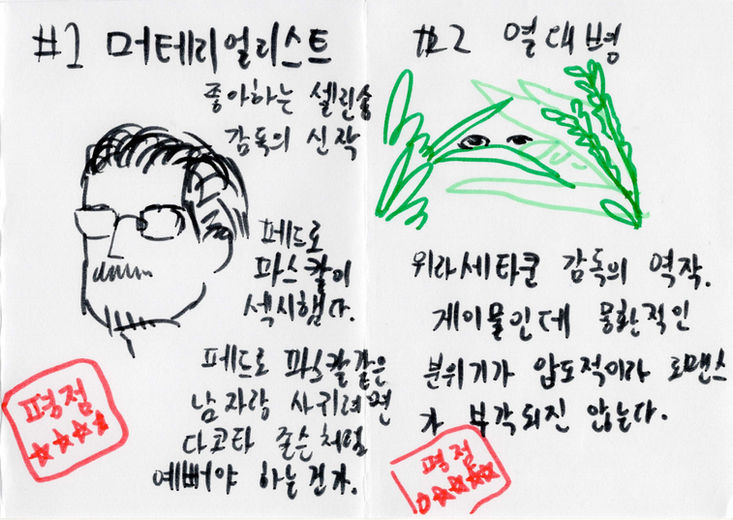 #1 머테리얼리스트
좋아하는 셀린송
감독의 신작
페드로
파스칼이
섹시햇다.
페드로 파스칼같은
남자랑 사귀려면
다코타 존슨처럼
예뻐야 하는건가.
평점
☆☆☆☆
#2 열대병
위라세타쿤 감독의 역작.
게이물인데 몽환적인
분위기가 압도적이라 로맨스
가 부각되진 않는다.
평점
☆☆☆☆